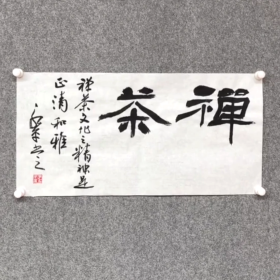 禪茶
禅茶文化之精神是
正清和雅